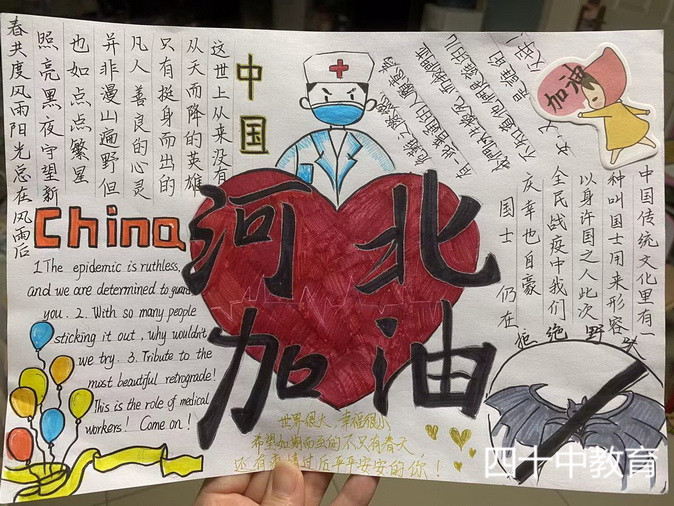 中国
这世上从来没有
从天而降的英雄
只有挺身而出的
凡人 善良的心灵
并非漫山遍野但
也如点点繁星
照亮黑夜守望新
春共度风雨阳光总在风雨后
加油
China
1.The epidemic is ruthless,
and we are determined to guard
you. 2. With so many people
sticking it out, why wouldn't
we try. 3. Tribute to the
most beautiful retrograde!
This is the role of medical
workers! Come on!
河北
加油
中国传统文化里有一
种叫国士用来形容
以身许国之人此次
全民战疫中我们
庆幸也自豪
国士 仍在
拒绝野味
世界很大,幸福很小
希望如期而至的不只有春天
还有疫情过后平平安安的你!
四十中教育